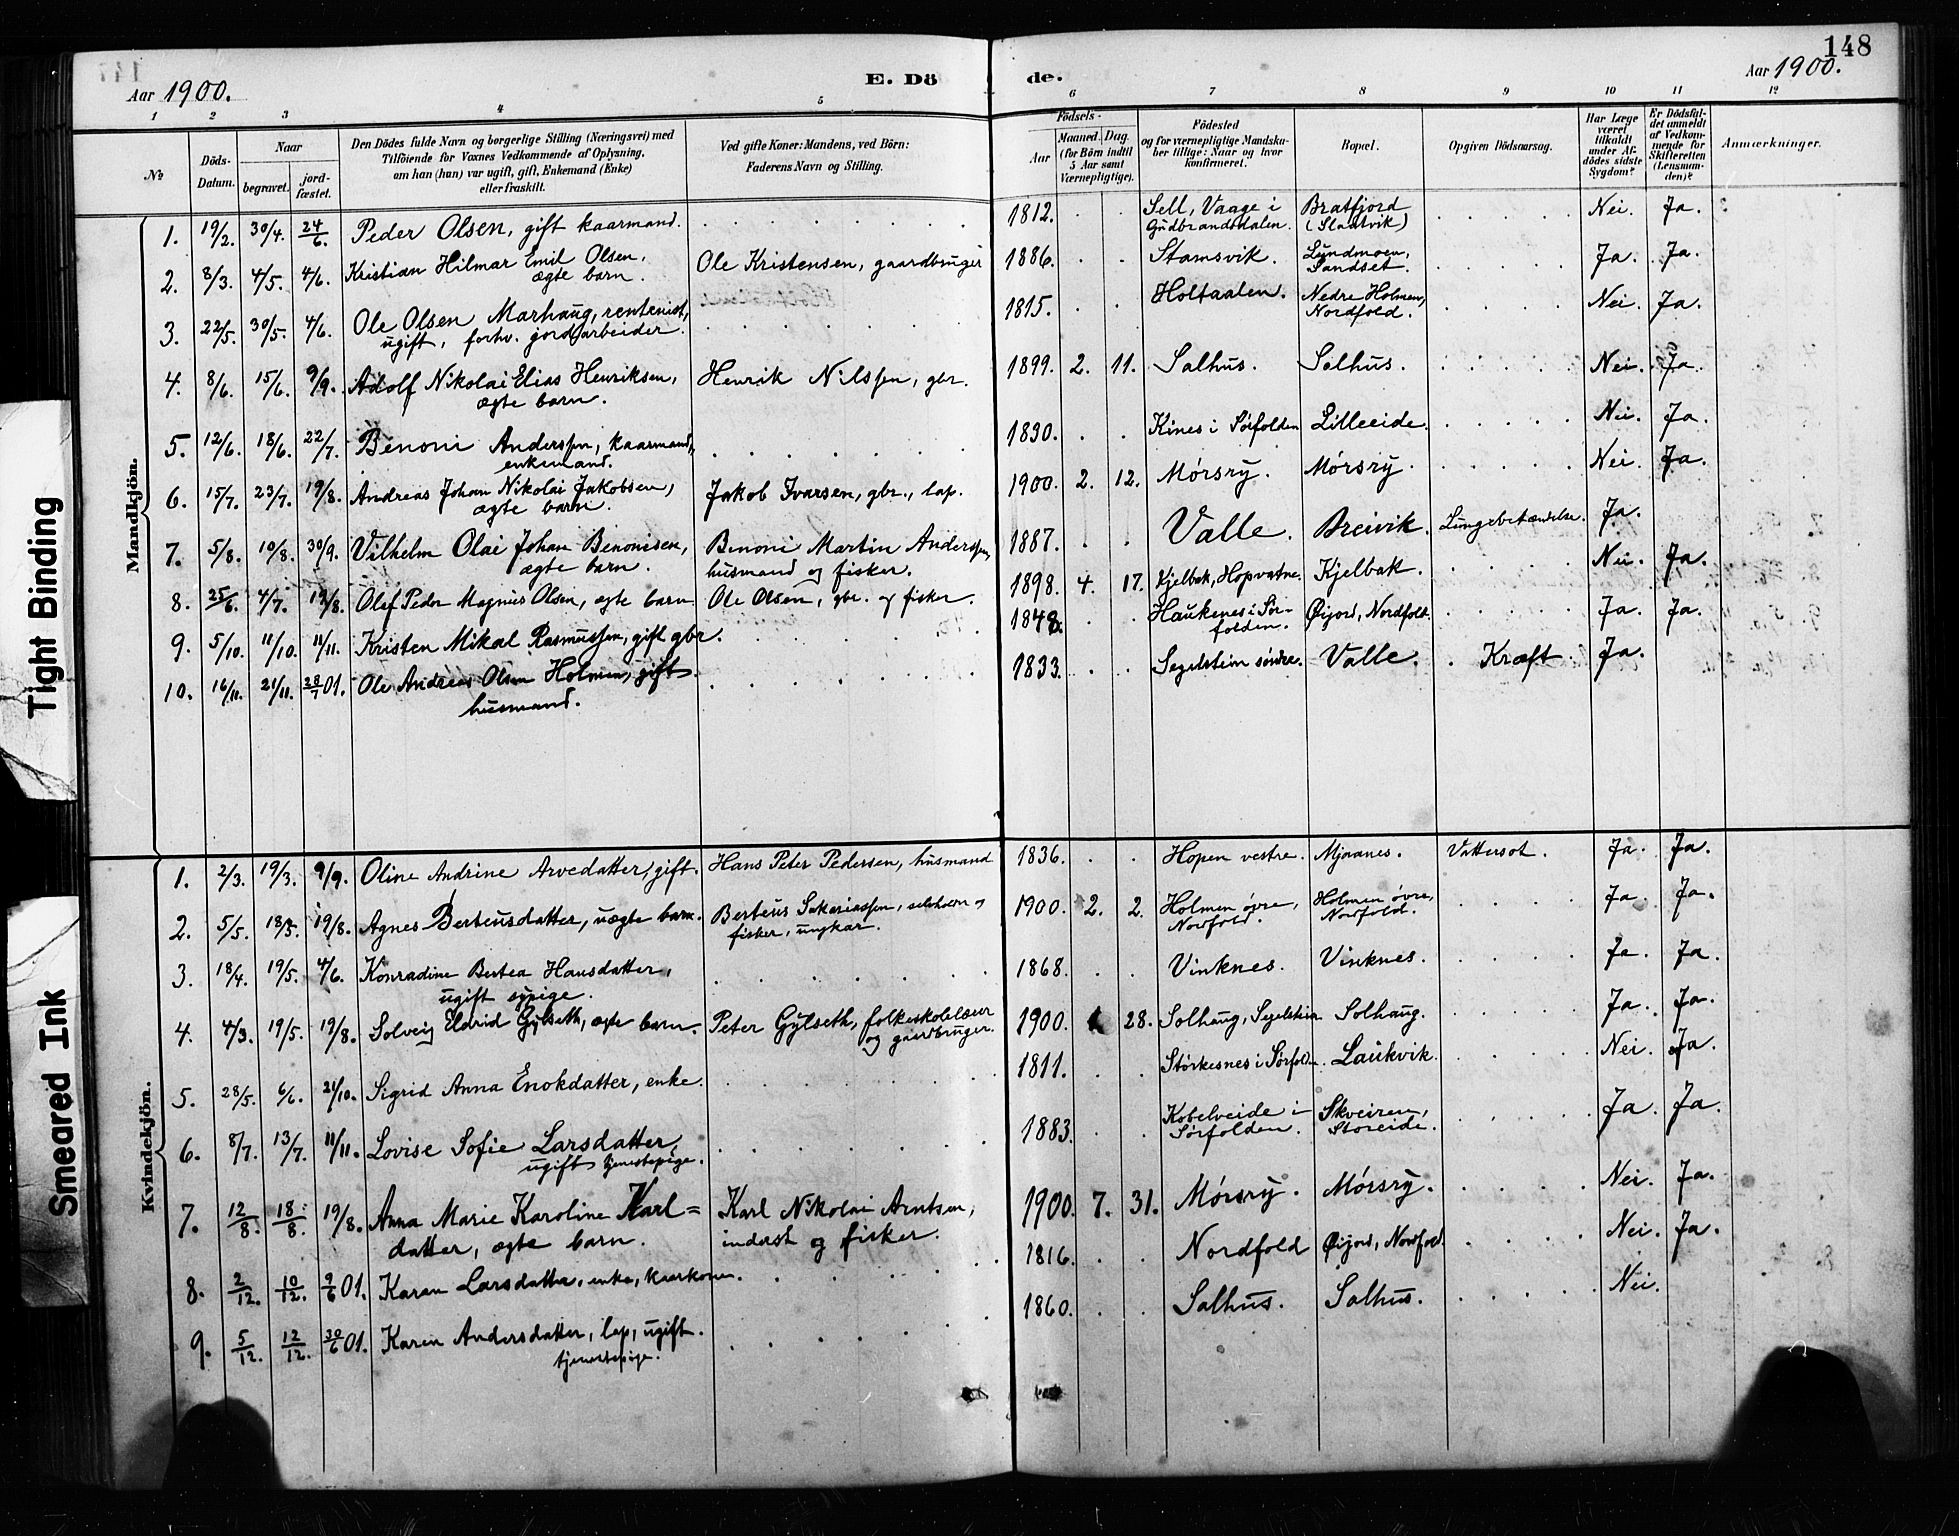 148
Aar 1900.
E. Dö
de.
Aar 1900.
1 2 3 4 5 6 7 8 9 10 11 12
№
Döds-
Datum.
Naar
begravet.
jord-
fæstet.
Den Dödes fulde Navn og borgerlige Stilling (Næringsvei) med
Tilföiende for Voxnes Vedkommende af Oplysning,
om han (hun) var ugift, gift, Enkemand (Enke)
eller fraskilt.
Ved gifte Koner: Mandens, ved Börn:
Faderens Navn og Stilling.
Födsels-
Aar
Maaned. Dag.
(for Börn indtil
5 Aar samt
Værnepligtige).
Födested
og for værnepligtige Mandsku-
ber tillige: Naar og hvor
konfirmeret.
Bopæl.
Opgiven Dödsaarsag.
Har Læge
været
tilkaldt
under Af-
dödes sidste
Sygdom?
Er Dödsfal-
det anmeldt
af Vedkom-
mende for
Skifteretten
(Lensman-
den)?
Anmærkninger.
Mandkjön.
1. 19/2. 30/4. 24/6. Peder Olsen, gift kaarmand. 1812. Sell, Vaage i Gudbrandsdalen. Bratfjord (Sladtvik) Nei. Ja.
2. 8/3. 4/5. 4/6. Kristian Hilmar Emil Olsen, ægte barn. Ole Kristensen, gaardbruger 1886. Stamsvik. Lundmoen, Sandset. Ja. Ja.
3. 22/5. 30/5. 4/6. Ole Olsen Marhaug, rentenist, ugift, forhv. jordarbeider. 1815. Holtaalen. Nedre Holmen, Nordfold. Nei. Ja.
4. 8/6. 15/6. 9/9. Adolf Nikolai Elias Henriksen, ægte barn. Henrik Nilssen, gbr. 1899. 2. 11. Salhus. Salhus. Nei. Ja.
5. 12/6. 18/6. 22/7. Benoni Anderssen, kaarmand, enkemand. 1830. Kines i Sørfolden Lilleeide. Nei. Ja.
6. 15/7. 23/7. 19/8. Andreas Johan Nikolai Jakobsen, ægte barn. Jakob Ivarsen, gbr., lap. 1900. 2. 12. Mørsry. Mørsry. Nei. Ja.
7. 5/8. 10/8. 30/9. Vilhelm Olai Johan Benonisen, ægte barn. Benoni Martin Anderssen, husmand og fisker. 1887. Valle. Breivik. Lungebetændelse. Ja.
8. 25/6. 4/7. 19/8. Olef Peder Magnus Olsen, ægte barn Ole Olsen, gbr. og fisker. 1898. 4. 17. Kjelbak, Hopvatne. Kjelbak. Nei. Ja.
9. 5/10. 11/10. 11/11. Kristen Mikal Rasmussen, gift gbr. 1848. Haukenes i Sør-folden. Øijord, Nordfold. Ja. Ja.
10. 16/11. 21/11. 28/7 01. Ole Andreas Olsen Holmen, gift husmand. 1833. Segelstein søndre. Valle. Kræft. Ja.
Kvindekjön.
1. 2/3. 19/3. 9/9. Oline Andrine Arvedatter, gift. Hans Peter Pedersen, husmand 1836. Hopen vestre. Mjaanes. Vattersot. Ja. Ja.
2. 5/5. 18/5. 19/8. Agnes Berteusdatter, uægte barn. Berteus Sakariassen, og fisker, ungkar. 1900. 2. 2. Holmen øvre, Nordfold. Holmen øvre, Nordfold. Ja. Ja.
3. 18/4. 19/5. 4/6. Konradine Bertea Hansdatter, ugift sypige. 1868. Vinknes. Vinknes. Ja. Ja.
4. 4/3. 19/5. 19/8. Solveig Eldrid Gylseth, ægte barn. Peter Gylseth, folkeskolelærer og gaardbruger. 1900. 28. Solhaug, Segelstein Solhaug. Ja. Ja.
5. 28/5. 6/6. 21/10. Sigrid Anna Enokdatter, enke. 1811. Størkesnes i Sørfolden. Laukvik. Nei. Ja.
6. 8/7. 13/7. 11/11. Lovise Sofie Larsdatter, ugift tjenestepige. 1883. Kobelveide i Sørfolden. Skveiren, Storeide. Ja. Ja.
7. 12/8. 18/8. 19/8. Anna Marie Karoline Karl=datter, ægte barn. Karl Nikolai Arntsen, inderst og fisker. 1900. 7. 31. Mørsry. Mørsry. Nei. Ja.
8. 2/12. 10/12. 9/6 01. Karen Larsdatter, enke, kaarkone. 1816. Nordfold Øijord, Nordfold. Nei. Ja.
9. 5/12. 12/12. 30/6 01. Karen Andersdatter, lap, ugift tjenestepige. 1860. Salhus. Salhus. Nei.
Tight Binding
Smeared Ink